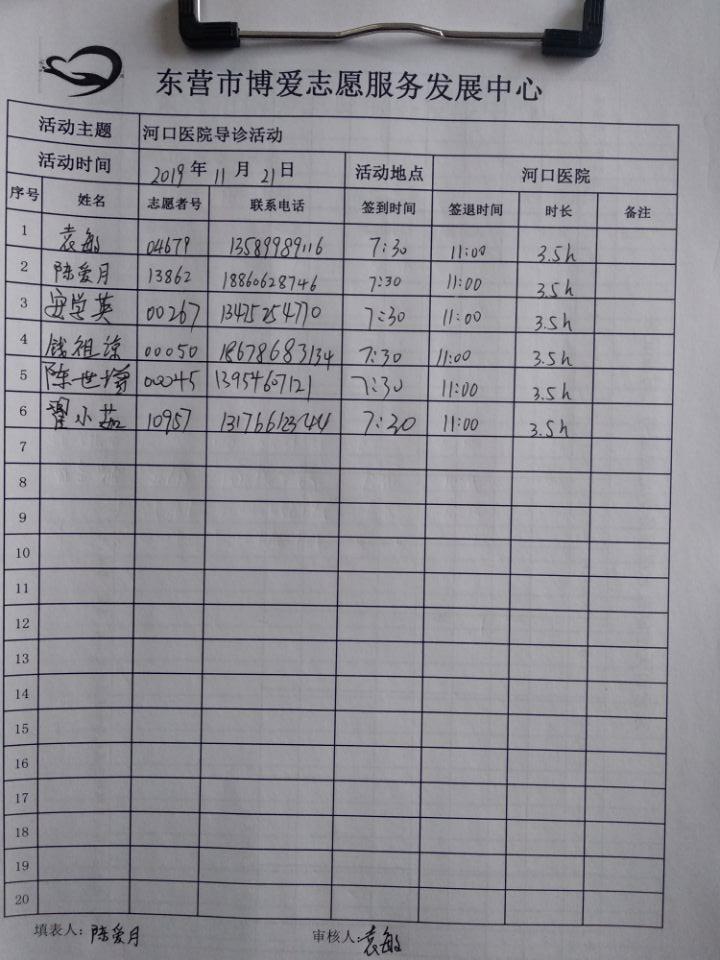 东营市博爱志愿服务发展中心
活动主题 河口医院导诊活动
活动时间 2019年11月21日 活动地点 河口医院
序号 姓名 志愿者号 联系电话 签到时间 签退时间 时长 备注
1 袁敏 04679 13589989116 7:30 11:00 3.5h
2 陈爱月 13862 18860628746 7:30 11:00 3.5h
3 安学英 00267 13475254770 7:30 11:00 3.5h
4 钱祖琼 00050 18678683134 7:30 11:00 3.5h
5 陈世 00045 13954607121 7:30 11:00 3.5h
6 翟小茹 10957 13176612344 7:30 11:00 3.5h
7
8
9
10
11
12
13
14
15
16
17
18
19
20
填表人: 陈爱月 审核人: 袁敏